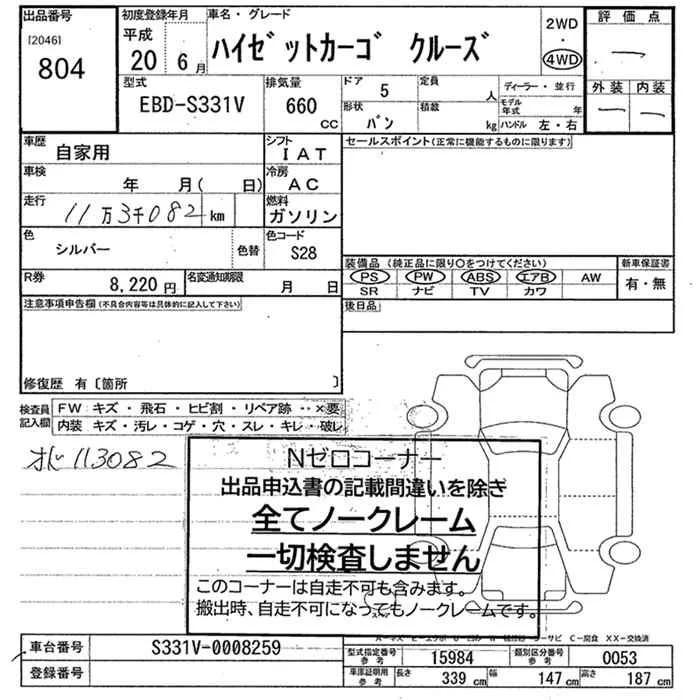 出品番号 初度登録年月 車名・グレード 2WD 評価点
[2046] 平成
804 20 6月 ハイゼットカーゴ クルーズ ・ 4WD ー
型式 排気量 ドア 5 定員 人 ディーラー・並行 外装 内装
EBD-S331V 660 cc 形状 バン 積載 kg モデル年式 年 ー ー
ハンドル 左・右
車歴 自家用 シフト IAT セールスポイント(正常に機能するものに限ります)
車検 年 月( 日) 冷房 AC
走行 11万3千082 km 燃料 ガソリン
色 シルバー 色替 色コード S28
装備品(純正品に限り○をつけてください) 新車保証書
R券 8,220円 名変通知期限 月 日 PS PW ABS エアB AW 有・無
SR ナビ TV カワ
注意事項申告欄(不具合内容等は具体的に記入して下さい) 後日品
修復歴 有〔箇所 〕
検査員記入欄 FW:キズ・飛石・ヒビ割・リペア跡・・×要
内装 キズ・汚レ・コゲ・穴・スレ・キレ・破レ
113082
Nゼロコーナー
出品申込書の記載間違いを除き
全てノークレーム
一切検査しません
このコーナーは自走不可も含みます。
搬出時、自走不可になってもノークレームです。
C-腐食 XX-交換済
車台番号 S331V-0008259 型式指定番号 参考 15984 類別区分番号 参考 0053
登録番号 車庫証明用 参考 長さ 339 cm 幅 147 cm 高さ 187 cm